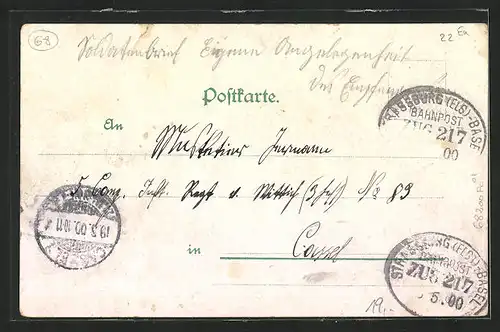 68
22
Soldatenbrief Eigene Angelegenheit
des Empfängers
Postkarte.
STRASSBURG (ELS)-BASEL
BAHNPOST
ZUG 217
00
An
Musketier
Inf. Regt v. Wittich (3 Hess) No 83
19.5.00
in Cassel
STRASSBURG (ELS)-BASEL
BAHNPOST
ZUG 217
5.00
19,-